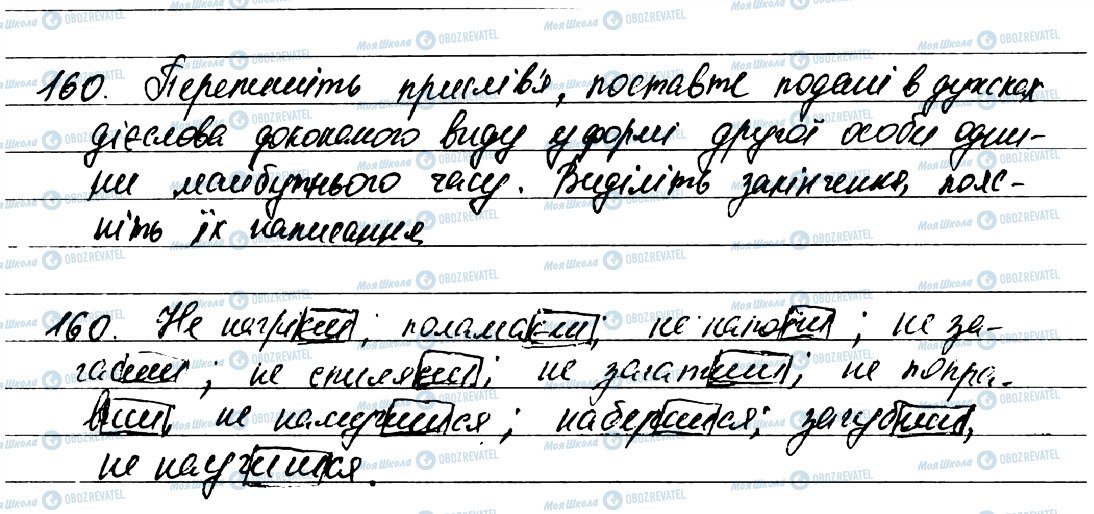 160. Перепишіть прислів'я, поставте подані в дужках
дієслова доконаного виду у формі другої особи одни-
ни майбутнього часу. Виділіть закінчення, пояс-
ніть їх написання
160. Не нагрієш; поламаєш; не напоїш; не за-
гасиш; не спиляєш; не загатиш; не попра-
виш, не намучишся; наберешся; загубиш,
не научишся.